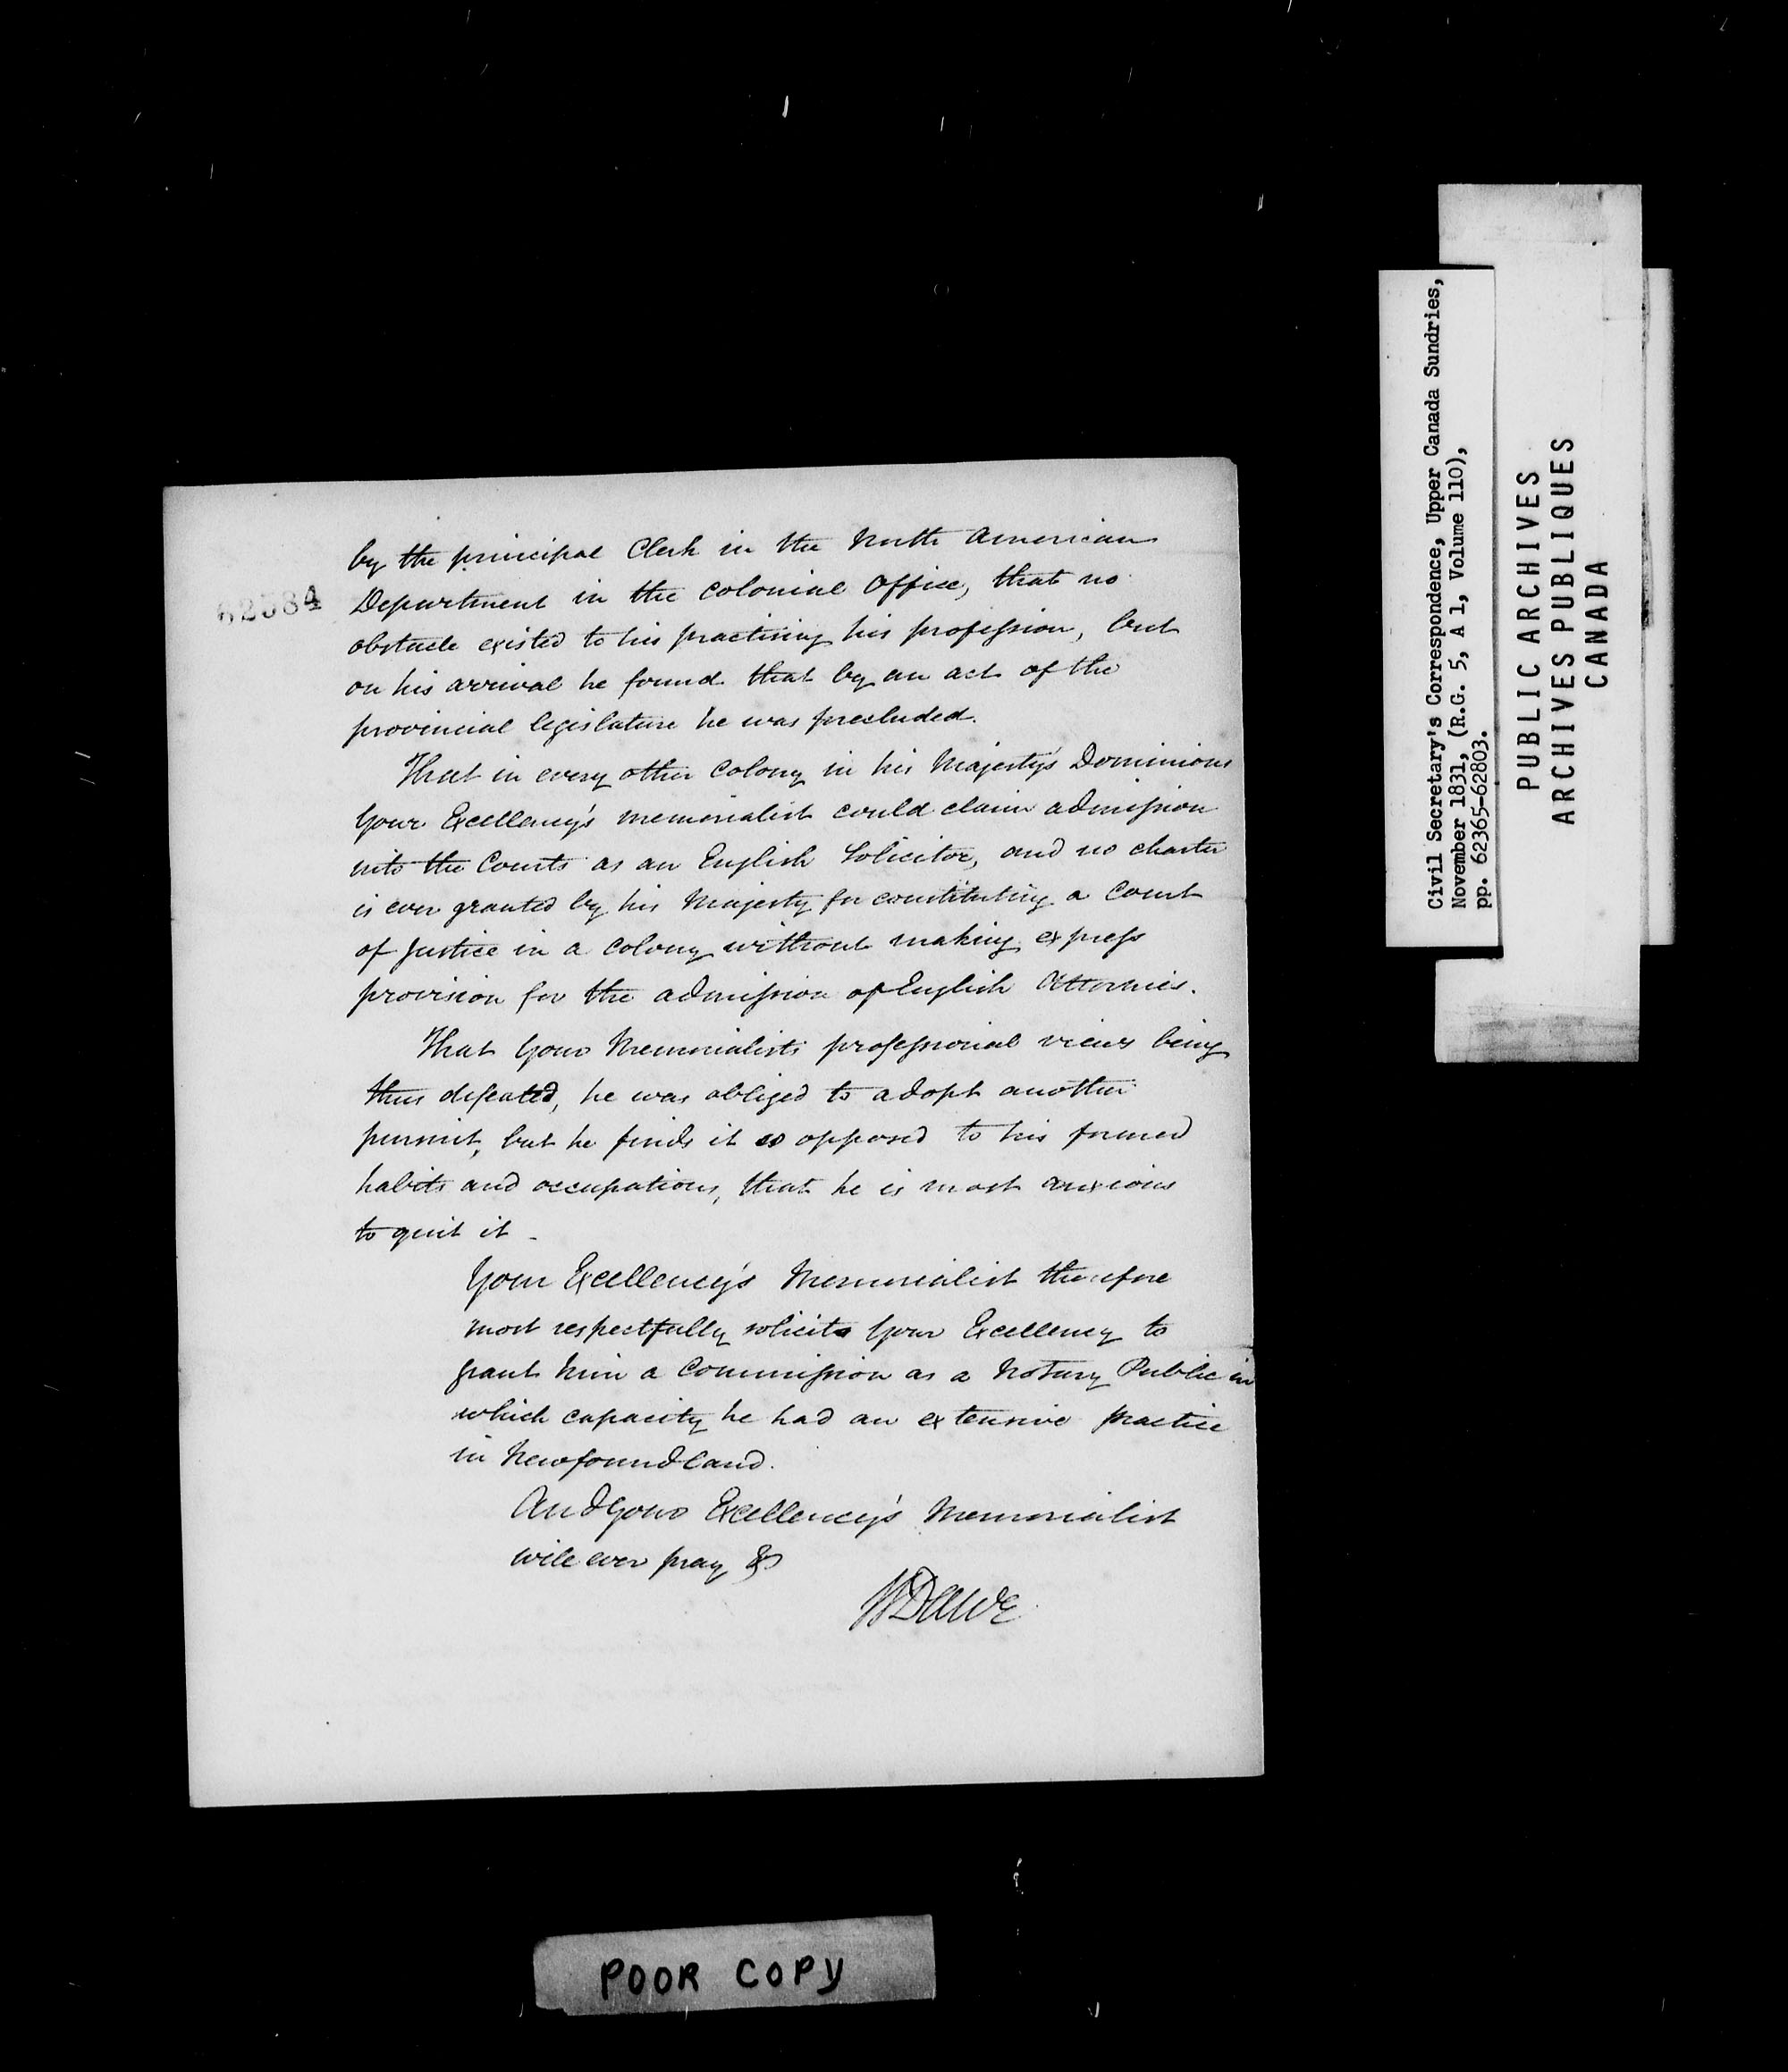 62584
by the principal Clerk in the North American
Department in the Colonial Office, that no
obstacle existed to his practising his profession, but
on his arrival he found that by an act of the
provincial legislature he was precluded.
That in every other Colony in his Majesty's Dominions
Your Excellency's memorialist could claim admission
into the Courts as an English Solicitor, and no charter
is ever granted by his Majesty for constituting a Court
of Justice in a Colony without making express
provision for the admission of English Attornies.
That Your Memorialists professional views being
thus defeated, he was obliged to adopt another
pursuit, but he finds it so opposed to his former
habits and occupations, that he is most anxious
to quit it _
Your Excellency's Memorialist therefore
most respectfully solicits Your Excellency to
grant him a Commission as a Notary Public in
which capacity he had an extensive practice
in Newfoundland.
And Your Excellency's Memorialist
will ever pray &c
W Dawe
Civil Secretary's Correspondence, Upper Canada Sundries,
November 1831, (R.G. 5, A 1, Volume 110),
pp. 62365-62803.
PUBLIC ARCHIVES
ARCHIVES PUBLIQUES
CANADA
POOR COPY